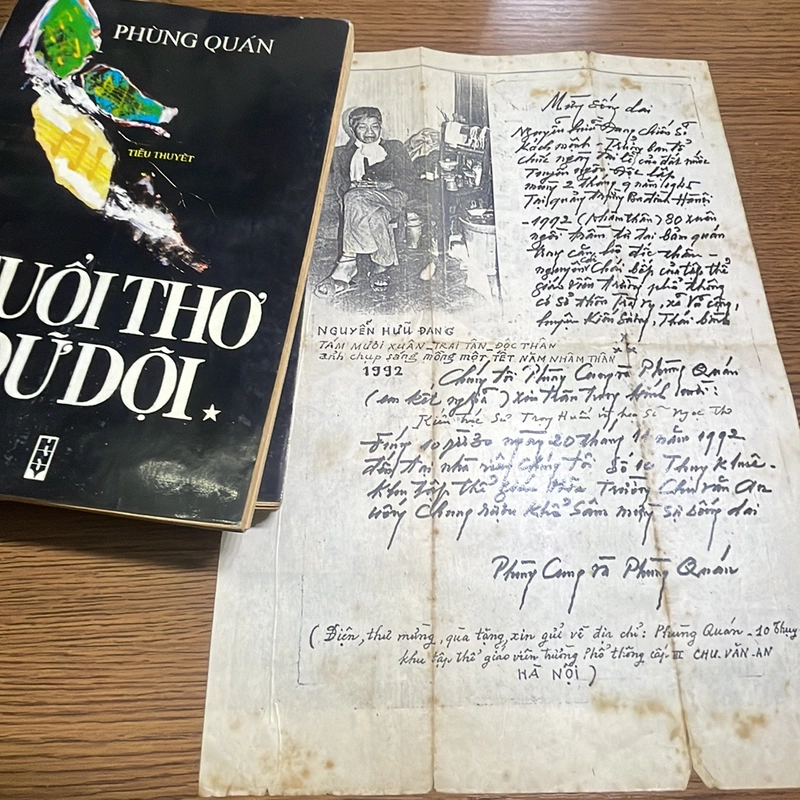 PHÙNG QUÁN
TIỂU THUYẾT
UỔI THƠ
DỮ DỘI
Mừng sống dai
Nguyễn Hữu Đang chiến sĩ
Cách mệnh - Trưởng ban tổ
chức ngày lễ của đất nước
Tuyên ngôn Độc lập
mồng 2 tháng 9 năm 1945
Tại quảng trường Ba đình Hà nội
- 1992 (Nhâm thân) 80 xuân
độc thân -
của tập thể
giáo viên Trường phổ thông
xã Vũ Công,
huyện Kiến Xương, Thái bình
NGUYỄN HỮU ĐANG
TÁM MƯƠI XUÂN - TRAI TÂN - ĐỘC THÂN
ảnh chụp sáng mồng một TẾT NĂM NHÂM THÂN
1992
Chúng tôi Phùng Cung và Phùng Quán
(em kết nghĩa) xin trân trọng kính mời:
Kiến trúc Sư Trọng Huấn và họa sĩ Ngọc Thọ
Đúng 10 giờ 30 ngày 20 tháng 11 năm 1992
đến tại nhà riêng chúng tôi Số 10 Thuỵ khuê -
khu tập thể giáo viên Trường Chu văn An
uống chung rượu khổ sâm mừng sự sống dai
Phùng Cung và Phùng Quán
(Điện, thư mừng, quà tặng, xin gửi về địa chỉ: Phùng Quán - 10 Thuỵ
khu tập thể giáo viên trường Phổ thông cấp III CHU - VĂN - AN
HÀ NỘI)